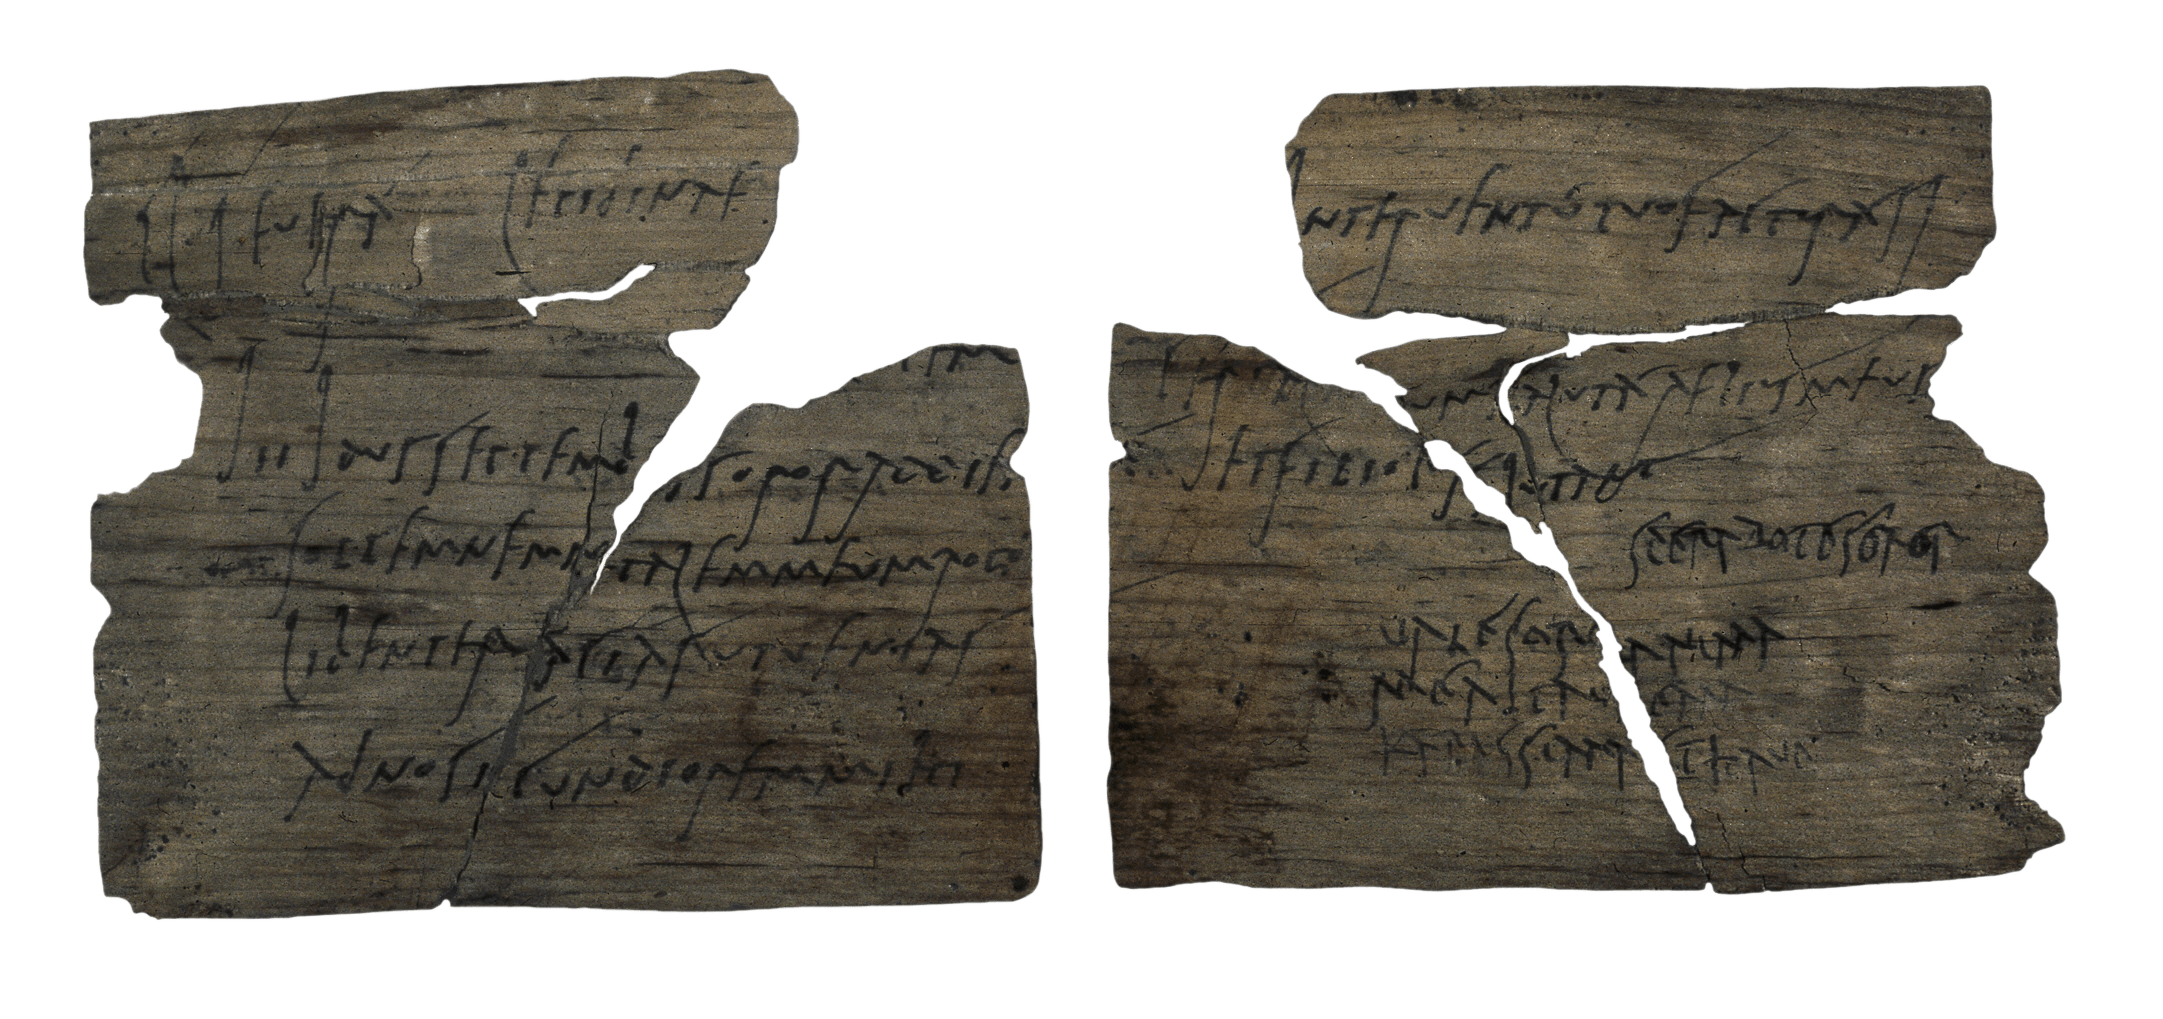 Cl Severá Lepidinae
tem
iii Idus Septembr s soror ad diem
sollemnem natalem meum rogó
libenter faciás ut venias
ad nos iucundiorem mihi
interventú tuo facturá si
Cerial uum salutá Aelius meus
et filiolus salutant
sperabo te soror
vale soror anima
mea ita valeam
karissima et have